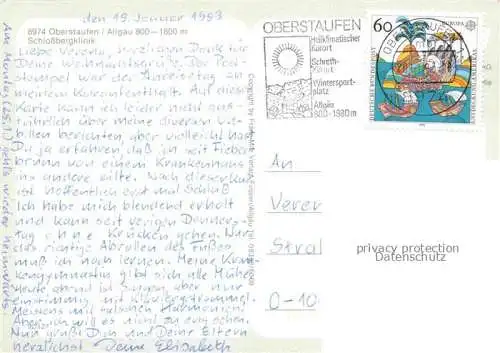 den 19. Januar 1993
8974 Oberstaufen / Allgäu 800 – 1800 m
Schloßbergklinik
Liebe Verena, herzlichen Dank für
Deine Weihnachtsgrüße. Der Post-
stempel war der Anreisetag in
meinem Kuraufenthalt. Auf dieser
Karte kann ich leider nicht aus-
führlich über meine diversen Un-
billen berichten, aber vielleicht hast
Du ja erfahren, daß ich seit Fieber
brunn von einem Krankenhaus
ins andere eilte. Nach dieser Kur
ist hoffentlich erst mal Schluß
Ich habe mich blendend erholt
und kann seit vorigen Donners-
tag ohne Krücken gehen. Nur
das richtige Abrollen des Fußes
muß ich noch lernen. Meine Kran-
kengymnastin gibt sich alle Mühe
Heute abend ist Singen, aber nur
einstimmig mit Klaviergetrommel.
Meistens mit falschen Harmonien.
Aber ich will es nicht zu eng sehen.
Nun grüße Dich und Deine Eltern
herzlichst Deine Elisabeth
Am Montag (25.1.) geht's wieder heimwärts
OBERSTAUFEN
Heilklimatischer
Kurort
Schroth-
Kurort
Wintersport-
platz
Allgäu
800-1980 m
60
EUROPA
DEUTSCHE BUNDESPOST
OBERSTAUFEN
An
Verer
Stral
O-10
privacy protection
Datenschutz